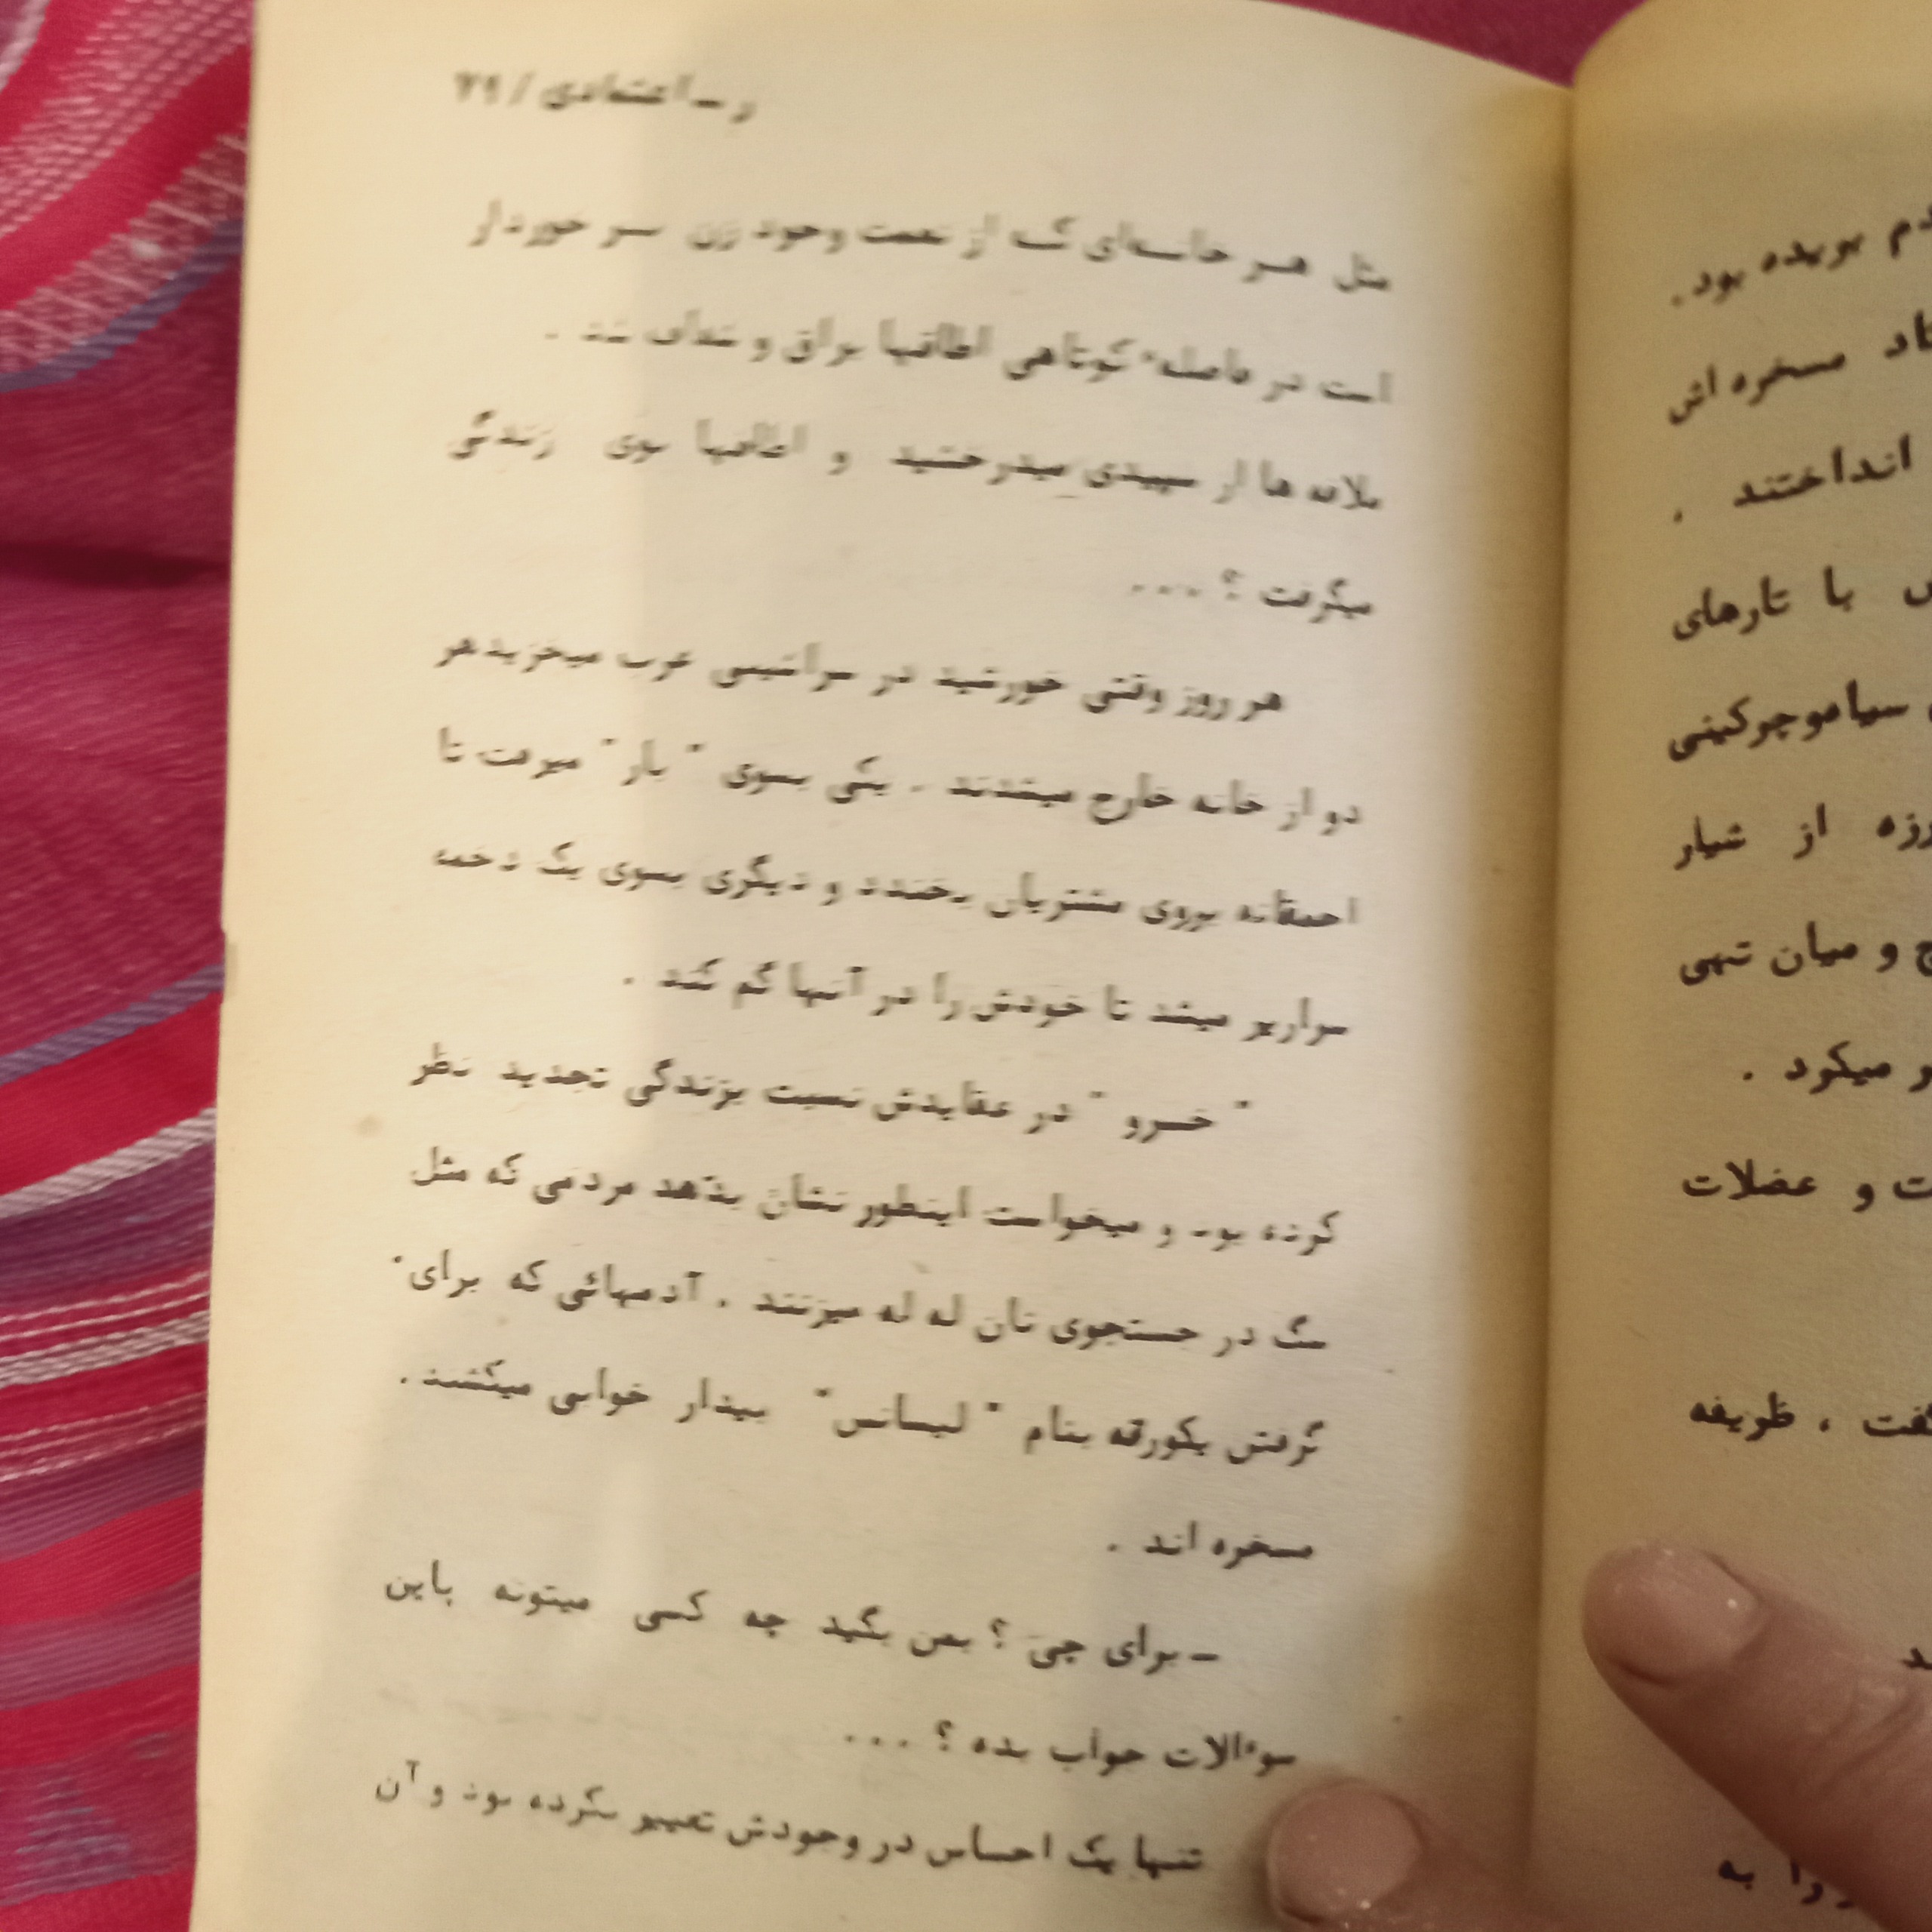 ر ــ اعتمادی / ۷۹
مثل هـر خانـه‌ای کـه از نعمت وجود زن سـر خوردار
است در فاصلهٔ کوتاهی اطاقها براق و شفاف شد .
ملافه ها از سپیدی میدرخشید و اطاقها بوی زندگی
میگرفت ؟ ....
هر روز وقتی خورشید در سراشیبی غرب میخزیدهر
دو از خانه خارج میشدند . یکی بسوی " بار " میرفت تا
احمقانه بروی مشتریان بخندد و دیگری بسوی یک دخمه
سرازیر میشد تا خودش را در آنها گم کند .
" خسرو " در عقایدش نسبت بزندگی تجدید نظر
کرده بود و میخواست اینطور نشان بدهد مردمی که مثل
سگ در جستجوی نان له له میزنند . آدمهائی که برای
گرفتن یکورقه بنام " لیسانس " بیدار خوابی میکشند .
مسخره اند .
ــ برای چی ؟ بمن بگید چه کسی میتونه باین
سوءالات جواب بده ؟ ...
تنها یک احساس در وجودش تغییر نکرده بود و آن
بریده بود .
مسخره اش
انداختند .
با تارهای
سیاموچرکینی
از شیار
و میان تهی
میکرد .
و عضلات
، ظریفه
را به